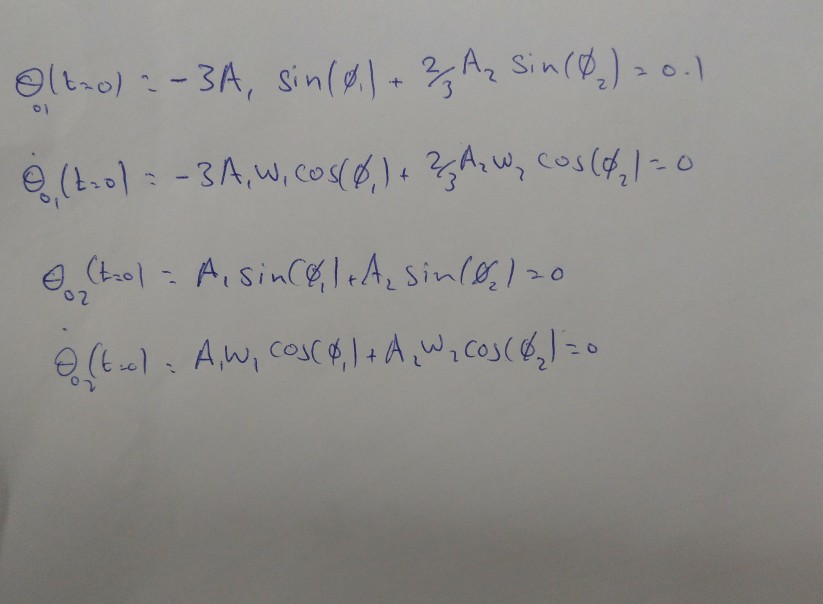 θ₀₁(t=0) = -3A₁ sin(φ₁) + 2/3 A₂ sin(φ₂) = 0.1
θ̇₀₁(t=0) = -3A₁W₁cos(φ₁) + 2/3 A₂W₂ cos(φ₂) = 0
θ₀₂(t=0) = A₁ sin(φ₁) + A₂ sin(φ₂) = 0
θ̇₀₂(t=0) = A₁W₁ cos(φ₁) + A₂W₂cos(φ₂) = 0